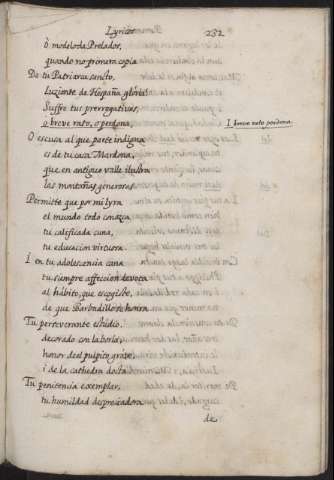 Lyricas
232
ò modelo da Prelador,
quando no primera copia
De tu Patriarca sancto,
Luziente de España gloria:
Suffre tus prerrogativas,
o breve rato, o perdona,
I breve rato perdona.
O escusa al que parte indigna
es de tu casa Mardona,
que en antiguo valle ilustra
las montañas generosas.
Permitte que por mi lyra
el mundo todo conozca
tu calificada cuna,
tu educacion virtuosa
I en tu adolescencia cana
tu siempre affeccion devota
al hábito, que escogiste,
de que Barbadillo se honra
Tu perseverante estudio,
decorado con la borla,
honor de el pulpito grave,
i de la cathedra docta
Tu penitencia exemplar,
tu humildad despreciadora
de